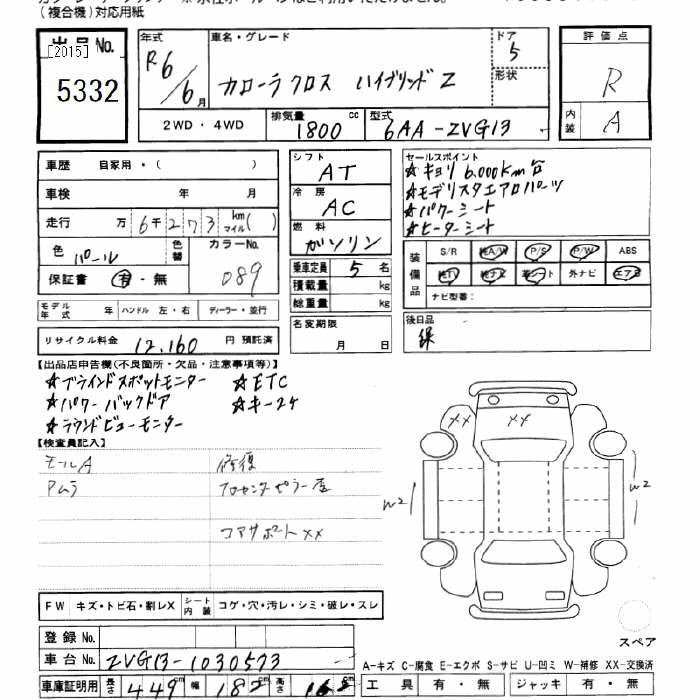 (複合機)対応用紙
出品 No.
[2015]
5332
年式
R6/6月
車名・グレード
カローラ クロス ハイブリッド Z
ドア
5
形状
2WD・4WD
排気量
1800 cc
型式
6AA-ZVG13
評価点
R
内装
A
車歴 自家用・( )
車検 年 月
走行 万 6千273 km マイル( )
色 パール
色替
カラーNo. 089
保証書 有・無
シフト AT
冷房 AC
燃料 ガソリン
乗車定員 5 名
積載量 kg
総重量 kg
セールスポイント
☆キョリ 6.000Km台
☆モデリスタエアロパーツ
☆パワーシート
☆ヒーターシート
装備品
S/R 純A/W P/S P/W ABS
純TV 純ナビ 革シート 外ナビ エアB
ナビ型番:
モデル年式 年 ハンドル 左・右 ディーラー・並行
リサイクル料金 12.160 円 預託済
名変期限 月 日
後日品
録
【出品店申告欄(不良箇所・欠品・注意事項等)】
☆ブラインドスポットモニター ☆ETC
☆パワーバックドア ☆キー2ケ
☆ラウンドビューモニター
【検査員記入】
モールA 修復
Pムラ フロセンターピラー歪
コアサポートXX
XX XX
W2 W2
FW キズ・トビ石・割レX
シート内装 コゲ・穴・汚レ・シミ・破レ・スレ
登録 No.
車台 No. ZVG13-1030573
車庫証明用 長さ 449 cm 幅 182 cm 高さ 162 cm
スペア
A-キズ C-腐食 E-エクボ S-サビ U-凹ミ W-補修 XX-交換済
工具 有・無 ジャッキ 有・無